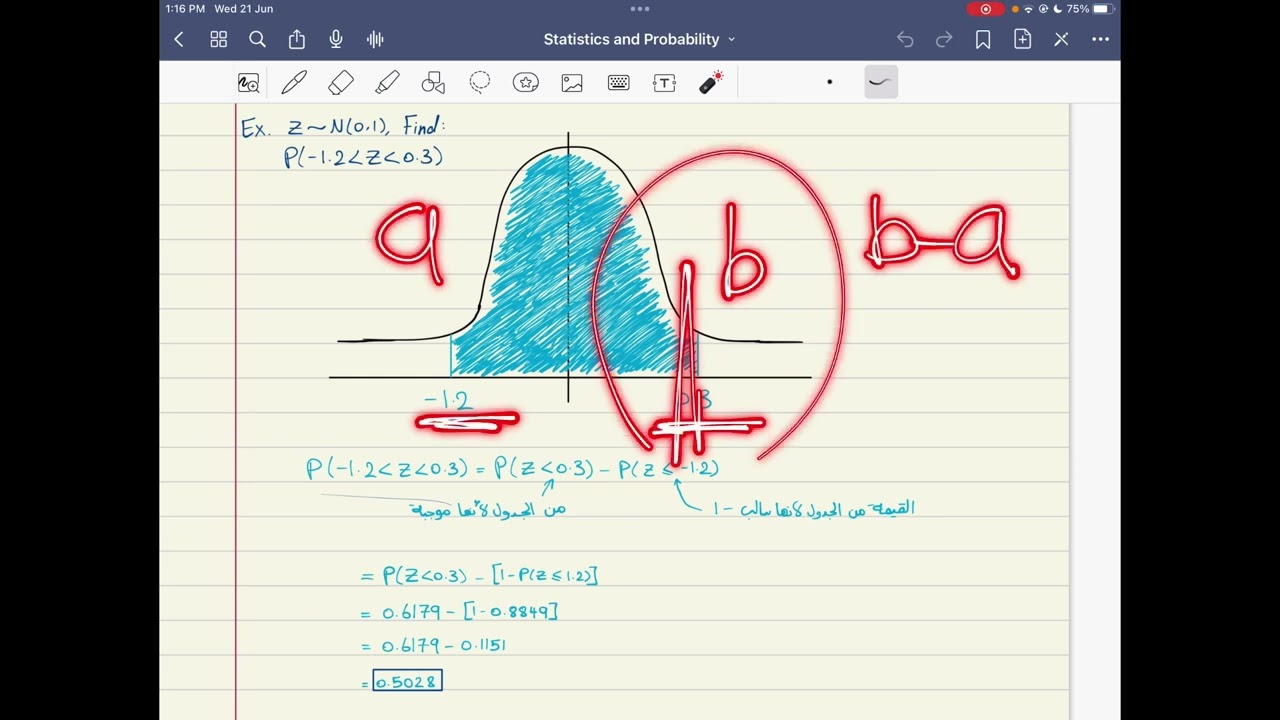 1:16 PM Wed 21 Jun
75%
Statistics and Probability
Ex. Z~N(0,1), Find:
P(-1.2<Z<0.3)
a
b
b-a
-1.2
0.3
P(-1.2<Z<0.3) = P(Z<0.3) - P(Z≤-1.2)
من الجدول لأنها موجبة
1 - القيمة من الجدول لانها سالب
= P(Z<0.3) - [1-P(Z≤1.2)]
= 0.6179 - [1-0.8849]
= 0.6179 - 0.1151
= 0.5028